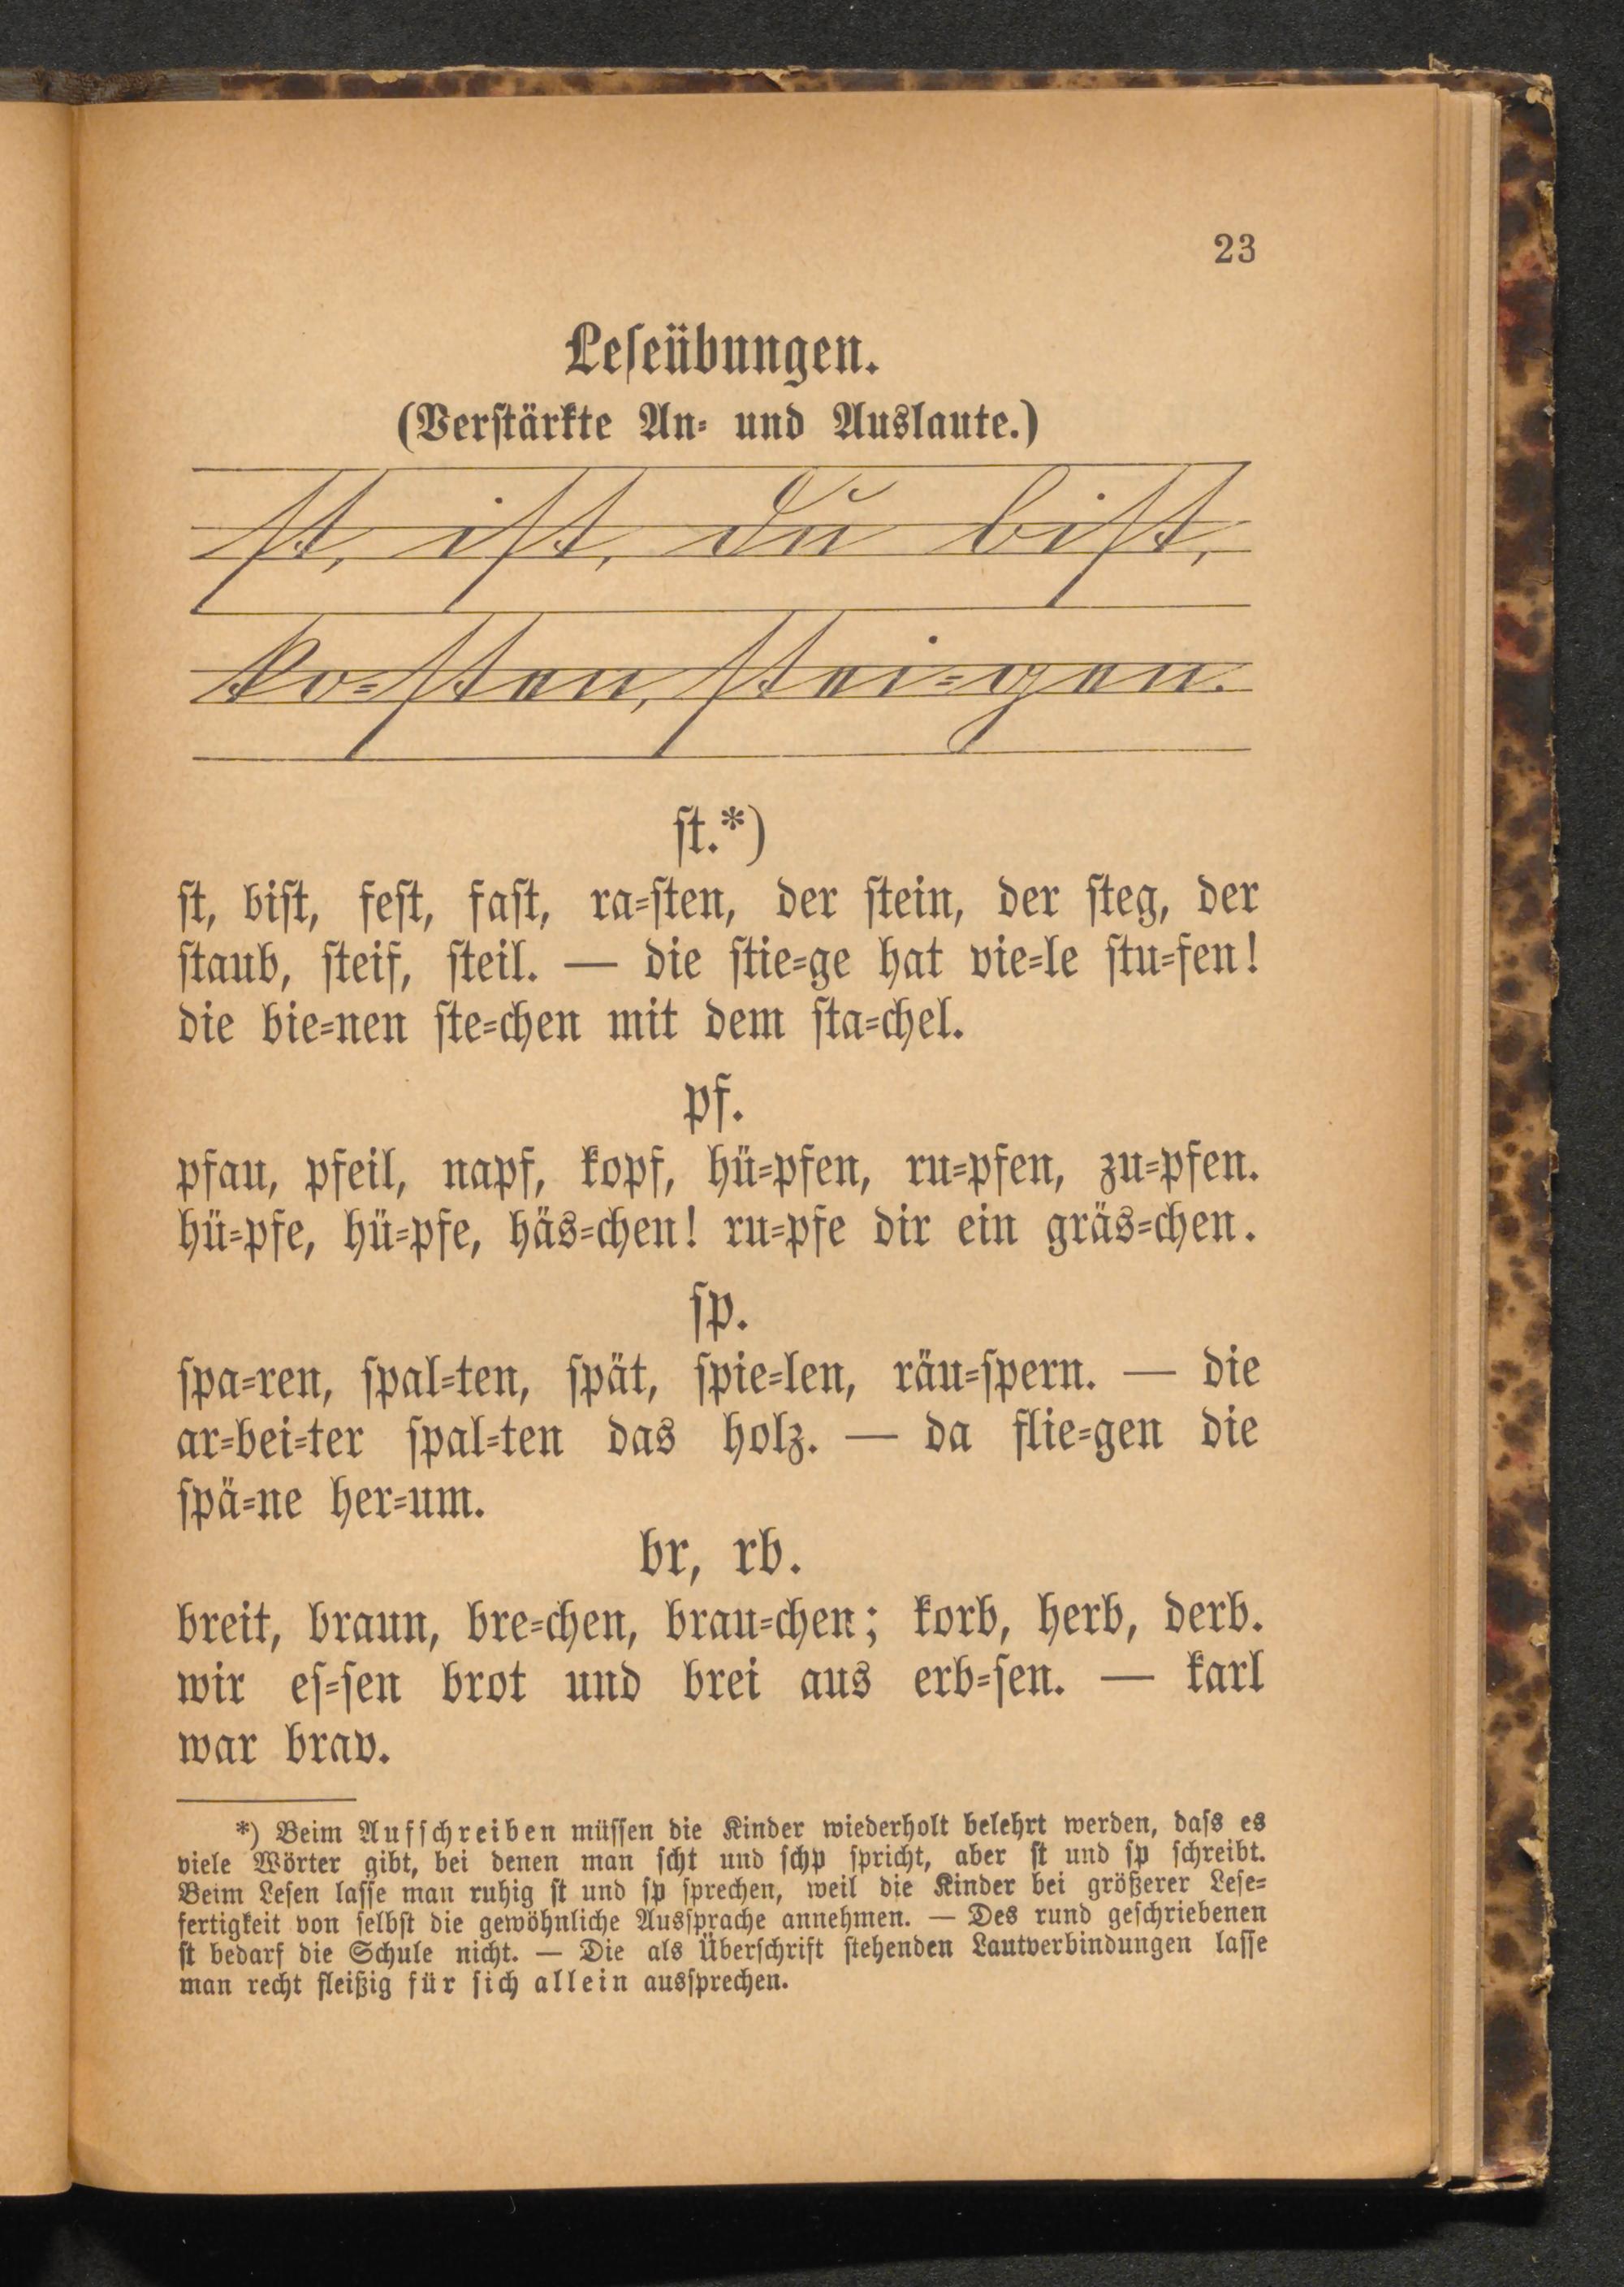 23
Leſeübungen.
(Verſtärkte An- und Auslaute.)
ſt, iſt, du biſt,
ko-ſten, ſtei-gen.
ſt.*)
ſt, biſt, feſt, faſt, ra-ſten, der ſtein, der ſteg, der
ſtaub, ſteif, ſteil. — die ſtie-ge hat vie-le ſtu-fen!
die bie-nen ſte-chen mit dem ſta-chel.
pf.
pfau, pfeil, napf, kopf, hü-pfen, ru-pfen, zu-pfen.
hü-pfe, hü-pfe, häs-chen! ru-pfe dir ein gräs-chen.
ſp.
ſpa-ren, ſpal-ten, ſpät, ſpie-len, räu-ſpern. — die
ar-bei-ter ſpal-ten das holz. — da flie-gen die
ſpä-ne her-um.
br, rb.
breit, braun, bre-chen, brau-chen; korb, herb, derb.
wir eſ-ſen brot und brei aus erb-ſen. — karl
war brav.
*) Beim Aufſchreiben müſſen die Kinder wiederholt belehrt werden, daſs es
viele Wörter gibt, bei denen man ſcht und ſchp ſpricht, aber ſt und ſp ſchreibt.
Beim Leſen laſſe man ruhig ſt und ſp ſprechen, weil die Kinder bei größerer Leſe-
fertigkeit von ſelbſt die gewöhnliche Ausſprache annehmen. — Des rund geſchriebenen
ſt bedarf die Schule nicht. — Die als Überſchrift ſtehenden Lautverbindungen laſſe
man recht fleißig für ſich allein ausſprechen.